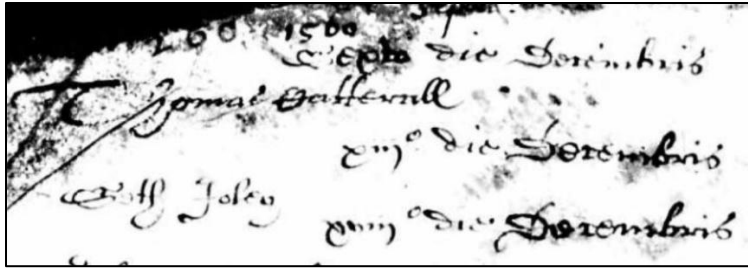 1560
Sexto die Decembris
Thomas Catterall
xiijº die Decembris
Joley
xviijº die Decembris